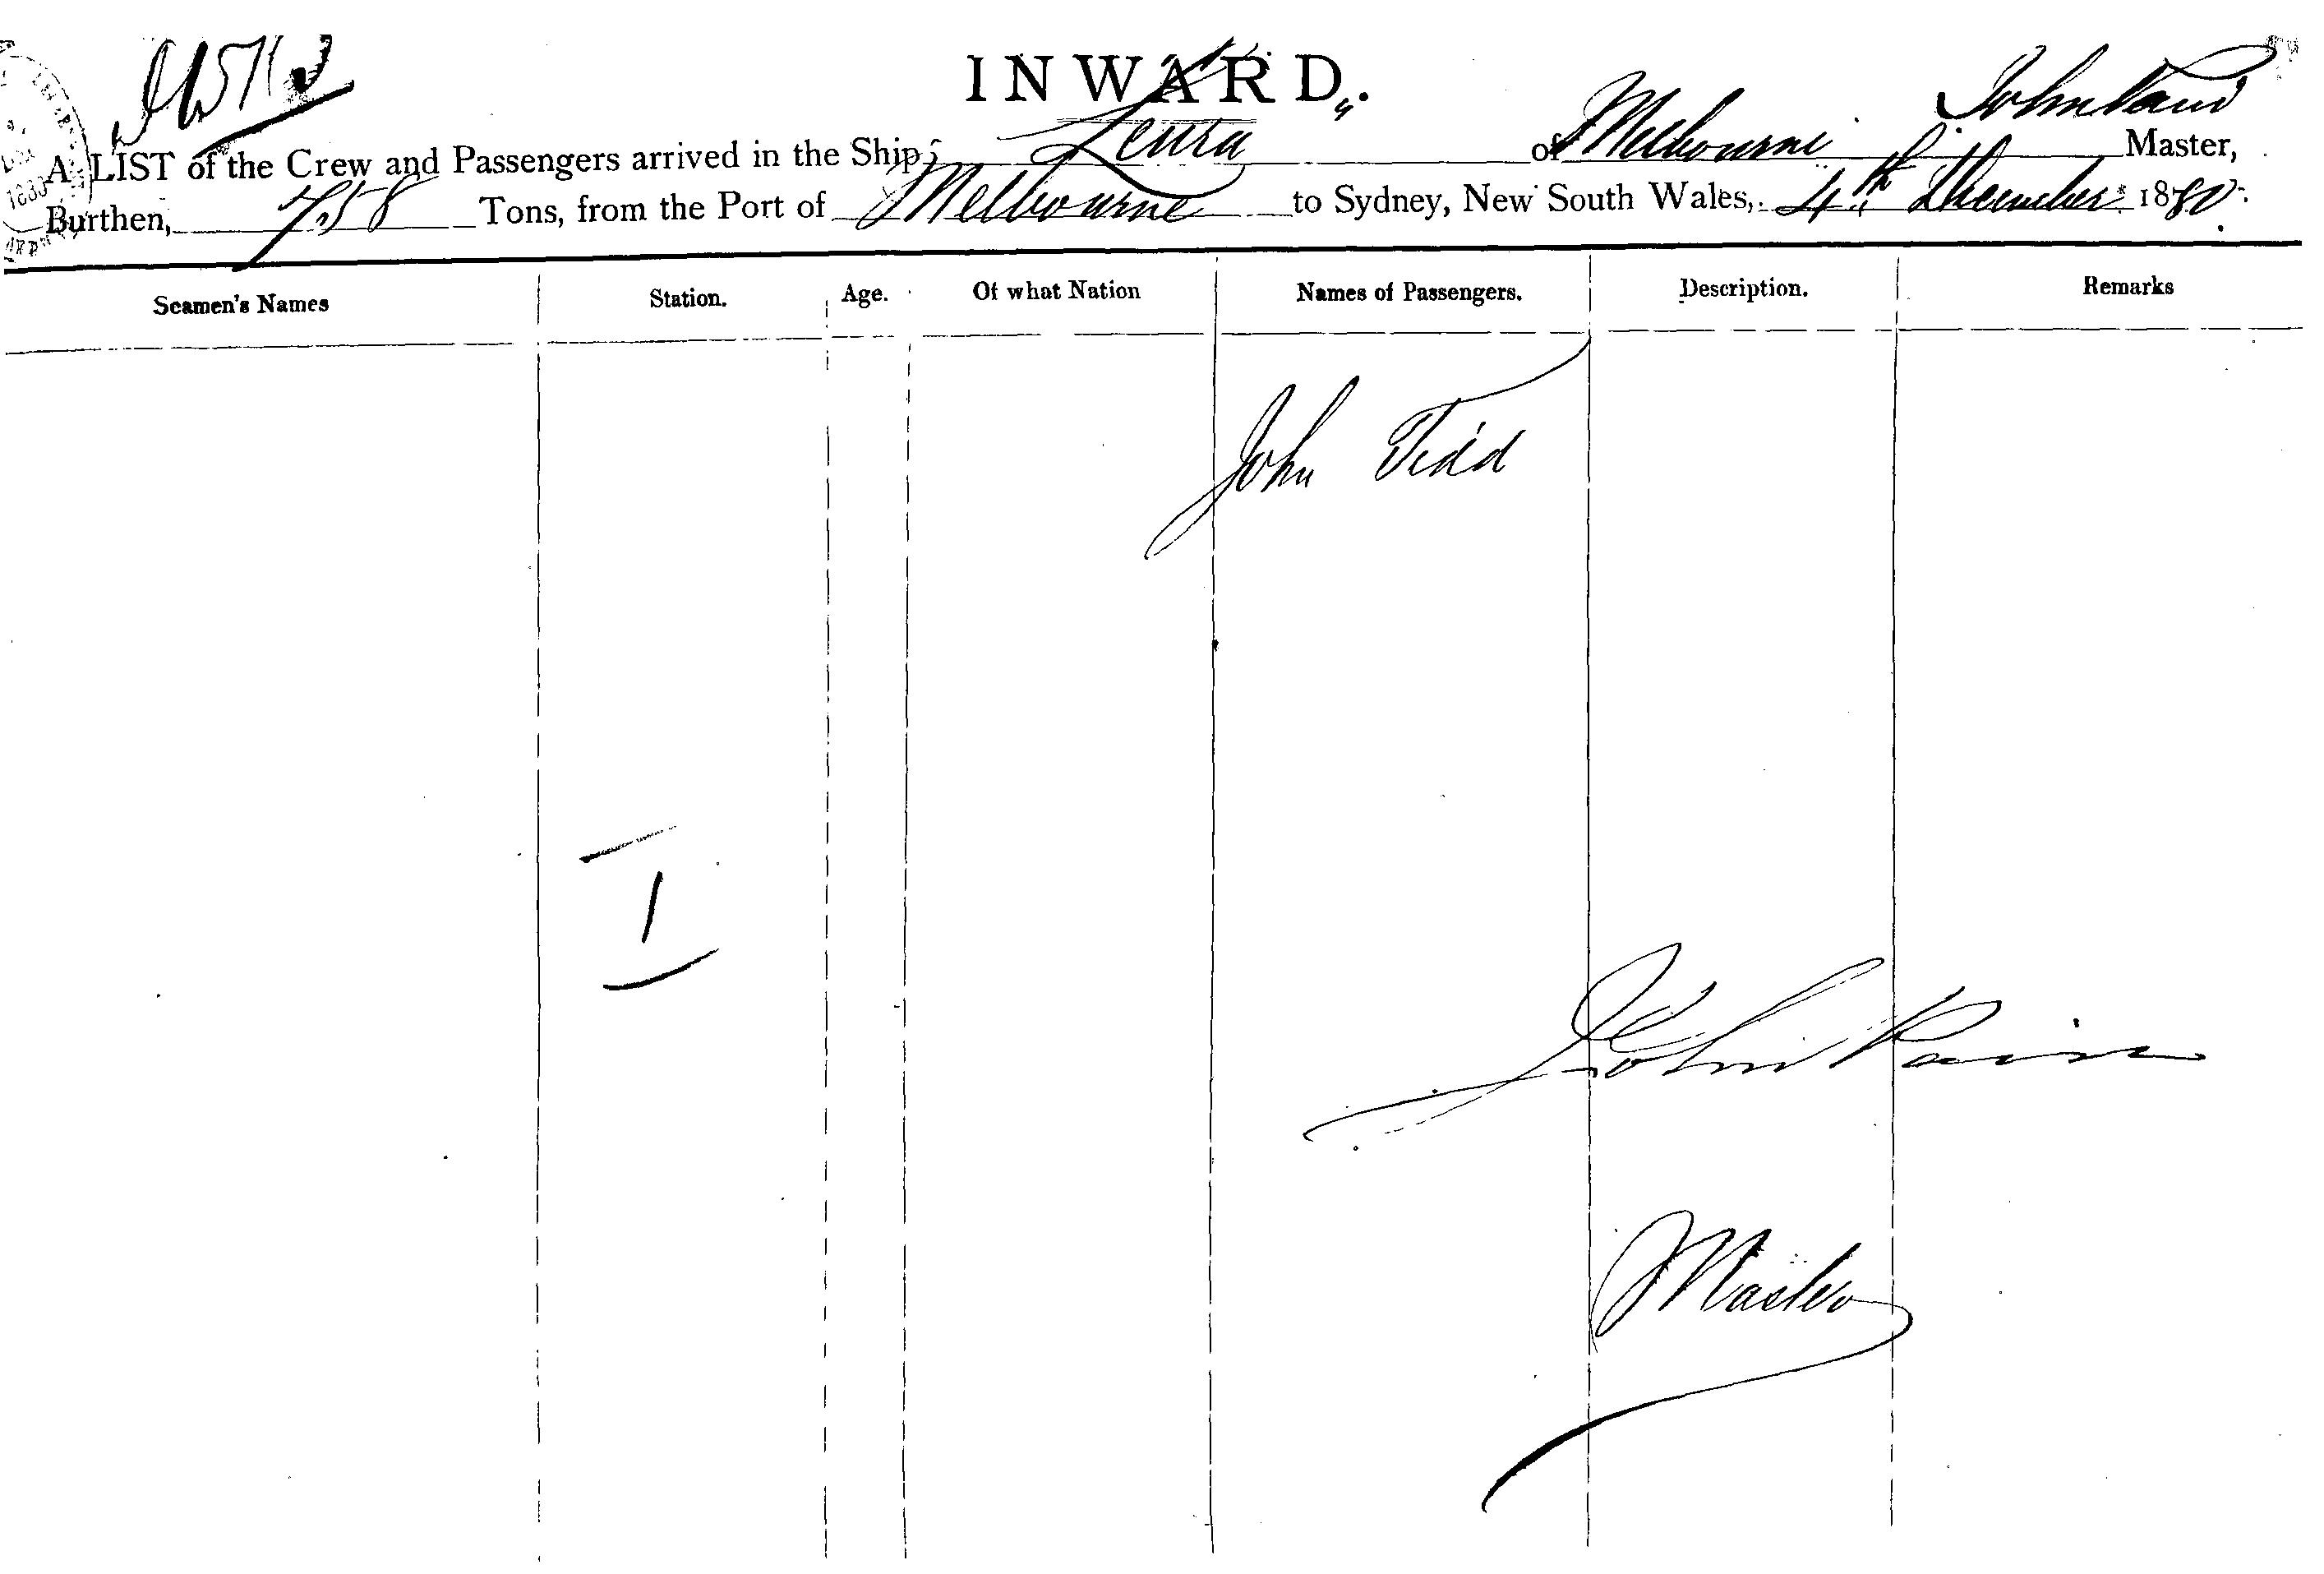 INWARD.
A LIST of the Crew and Passengers arrived in the Ship, Leura of Melbourne John Pain Master,
Burthen, 758 Tons, from the Port of Melbourne to Sydney, New South Wales, 4th December 1880.
Seamen's Names Station. Age. Of what Nation Names of Passengers. Description. Remarks
John Tidd
1
John Pain
Master